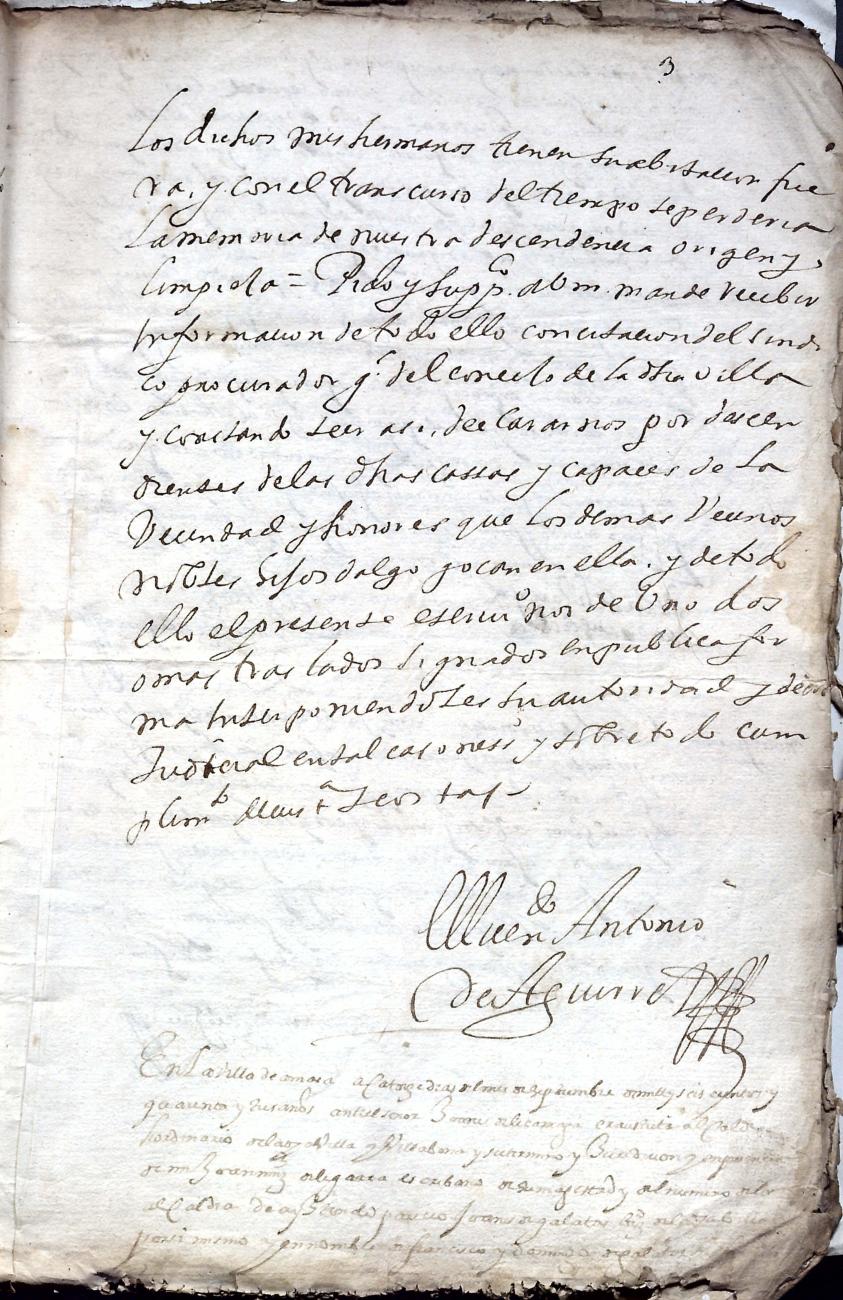 3
Los dichos mis hermanos tienen su abitacion fue
ra, y con el transcurso del tiempo se perderia
La memoria de nuestra descendencia origen y
limpieza = Pido y Suppco. a Vm. mande recibir
Informacion de todo ello con citacion del sindi
co procurador gl. del concejo de la dha villa
y constando ser asi, declararnos por descen
dientes de las dhas cassas y capaces de la
Vecindad y honores que los demas Vecinos
nobles hijos dalgo gozan en ella. y de todo
ello el presente escriuo. nos de Uno dos
o mas traslados signados en publica for
ma Interponiendoles su autoridad y
Judicial en tal caso ness. y sobre todo cum
plimto. de justa. y costas
Antonio
de Aguirre
En La Villa de a Catorze dias del mes de septiembre de mill y seis cientos y
quarenta y tres años ante el señor alcalde
hordinario de la dha Villa y Villabona y su termino y Juridicion y en presencia
de mi escribano de su magestad y del numero de la
alcaldia de parecio
por si mismo y en nombre de francisco y domingo de